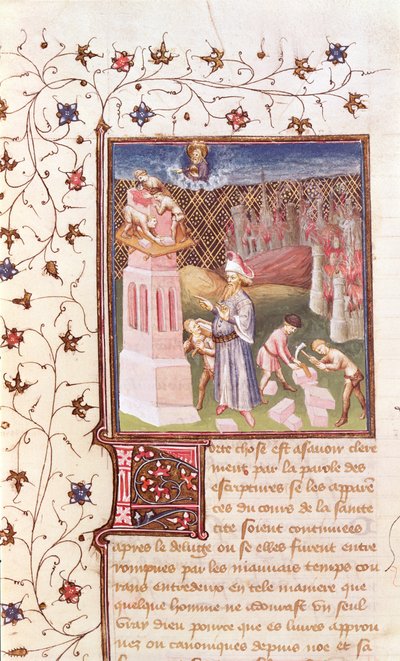 Forte chose est asavoir clere
ment par la parole des
escriptures se les apparen
ces du cours de la sainte
cite soient continuees
apres le deluge ou se elles furent entre
rompues par les mauvais temps cou
rans entredeux en tele maniere que
quelque homme ne adourast un seul
vray dieu pource que es livres approu
vez ou canoniques depuis noe et sa